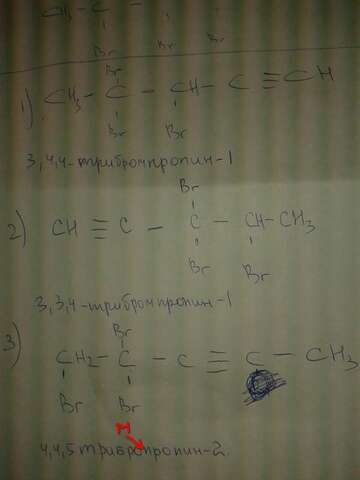 CH3 - C -
Br Br Br
Br
1) CH3 - C - CH - C ≡ CH
Br Br
3,4,4-трибромпропин-1
Br
2) CH ≡ C - C - CH - CH3
Br Br
3,3,4-трибромпропин-1
Br
3) CH2 - C - C ≡ C - CH3
Br Br
м
4,4,5трибропропин-2